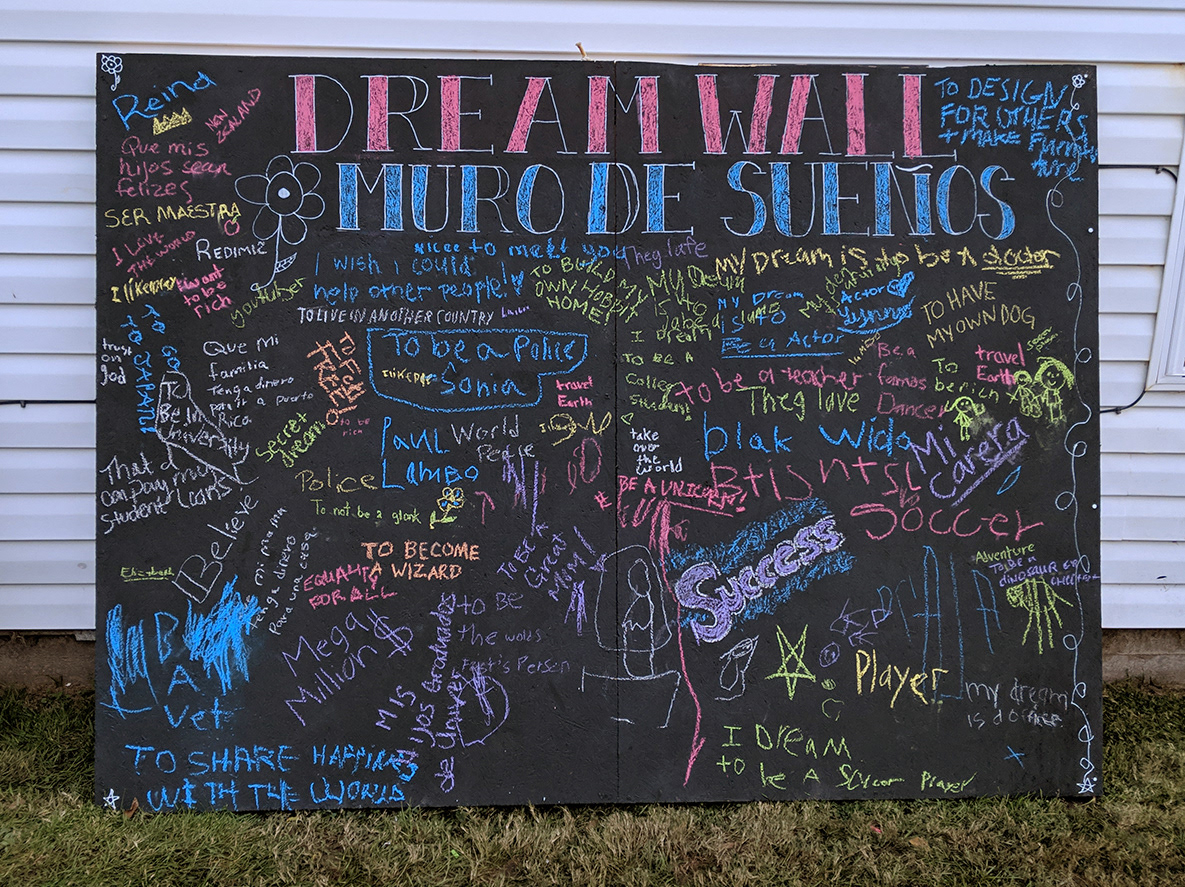 DREAM WALL
MURO DE SUEÑOS
Reina
NEW
ZEALAND
Que mis
hijos sean
felizes
SER MAESTRA
I LOVE
THE WORLD
REDIMIZ
I want
to be
rich
youtuber
TO DESIGN
FOR OTHERS
+ MAKE
Nicee to meet you
I wish i could
help other people!
They Lafe
TO BUILD MY
OWN HOBBIT
HOME!
TO LIVE IN ANOTHER COUNTRY
MY Dream is to be a doctor
MY Dream
IS TO
Be a Actor
Actor
TO HAVE
MY OWN DOG
I Dream
TO BE A
College
Student
GO
TO JAPAN!
trust
on
god
Que Mi
familia
Tenga dinero
para ir a puerto
Rico
TO
Be in
University
Secret
dream
to be
rich
To be a Police
Sonia
travel
Earth
PAUL
LAMBO
World
Peace
to be a teacher
They love
Be a
famos
Dancer
To
be rich
travel
Earth
take
over
the
World
blak wido
Mi
Carera
Btisntsl
BE A UNICORN!
Soccer
That a
company may my
student Loans
Police
To not be a glonk
Believe
Elizabeth
Tenga mi mama
dinero
Para una casa
TO BECOME
A WIZARD
EQUALITY
FOR ALL
TO BE A
Great
Mom!
Success
Adventure
TO BE
DINOSAUR EGG
BE
A
Vet
Mega
Million $
MIS
Hijos Graduados
de
to BE
the wolds
Fast's Person
Player
my dream
is
TO SHARE HAPPINESS
WITH THE WORLD
I DREAM
to be A Soccer Player